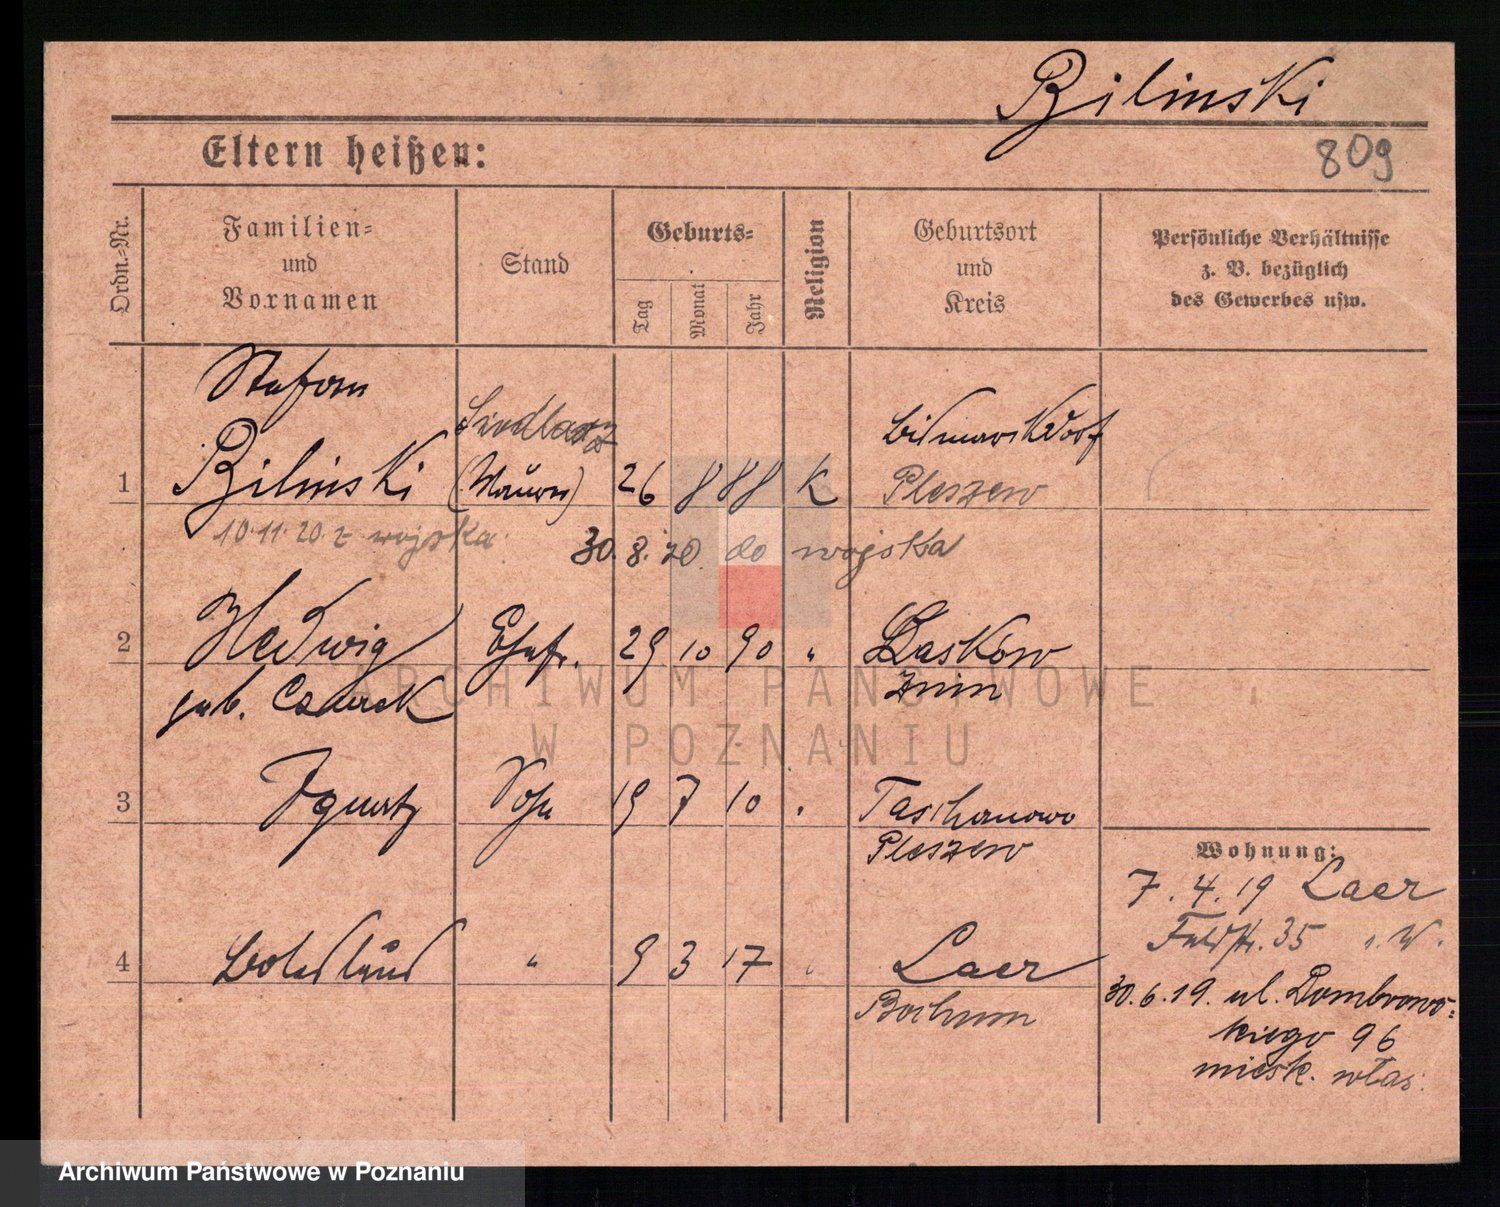 Bilinski
Eltern heißen:
809
Ordn.-Nr.
Familien-
und
Vornamen
Stand
Geburts-
Tag
Monat
Jahr
Religion
Geburtsort
und
Kreis
Persönliche Verhältnisse
z. B. bezüglich
des Gewerbes usw.
Stefan
1 Bilinski (Maurer) 26 8 88 K Bismarksdorf
Pleszew
10.11.20 z wojska 30.8.20 do wojska
2 Hedwig Ehefr. 29 10 90 " Laskowo
geb. Znin
3 Ignatz Sohn 19 7 10 " Taschanowo
Pleszew
4 Boleslaus " 9 3 17 " Laer
Bochum
Wohnung:
7.4.19 Laer
Feldstr. 35 i. W.
30.6.19. ul. Dombrows-
kiego 96
miesk. włas.
ARCHIWUM PAŃSTWOWE
W POZNANIU
Archiwum Państwowe w Poznaniu